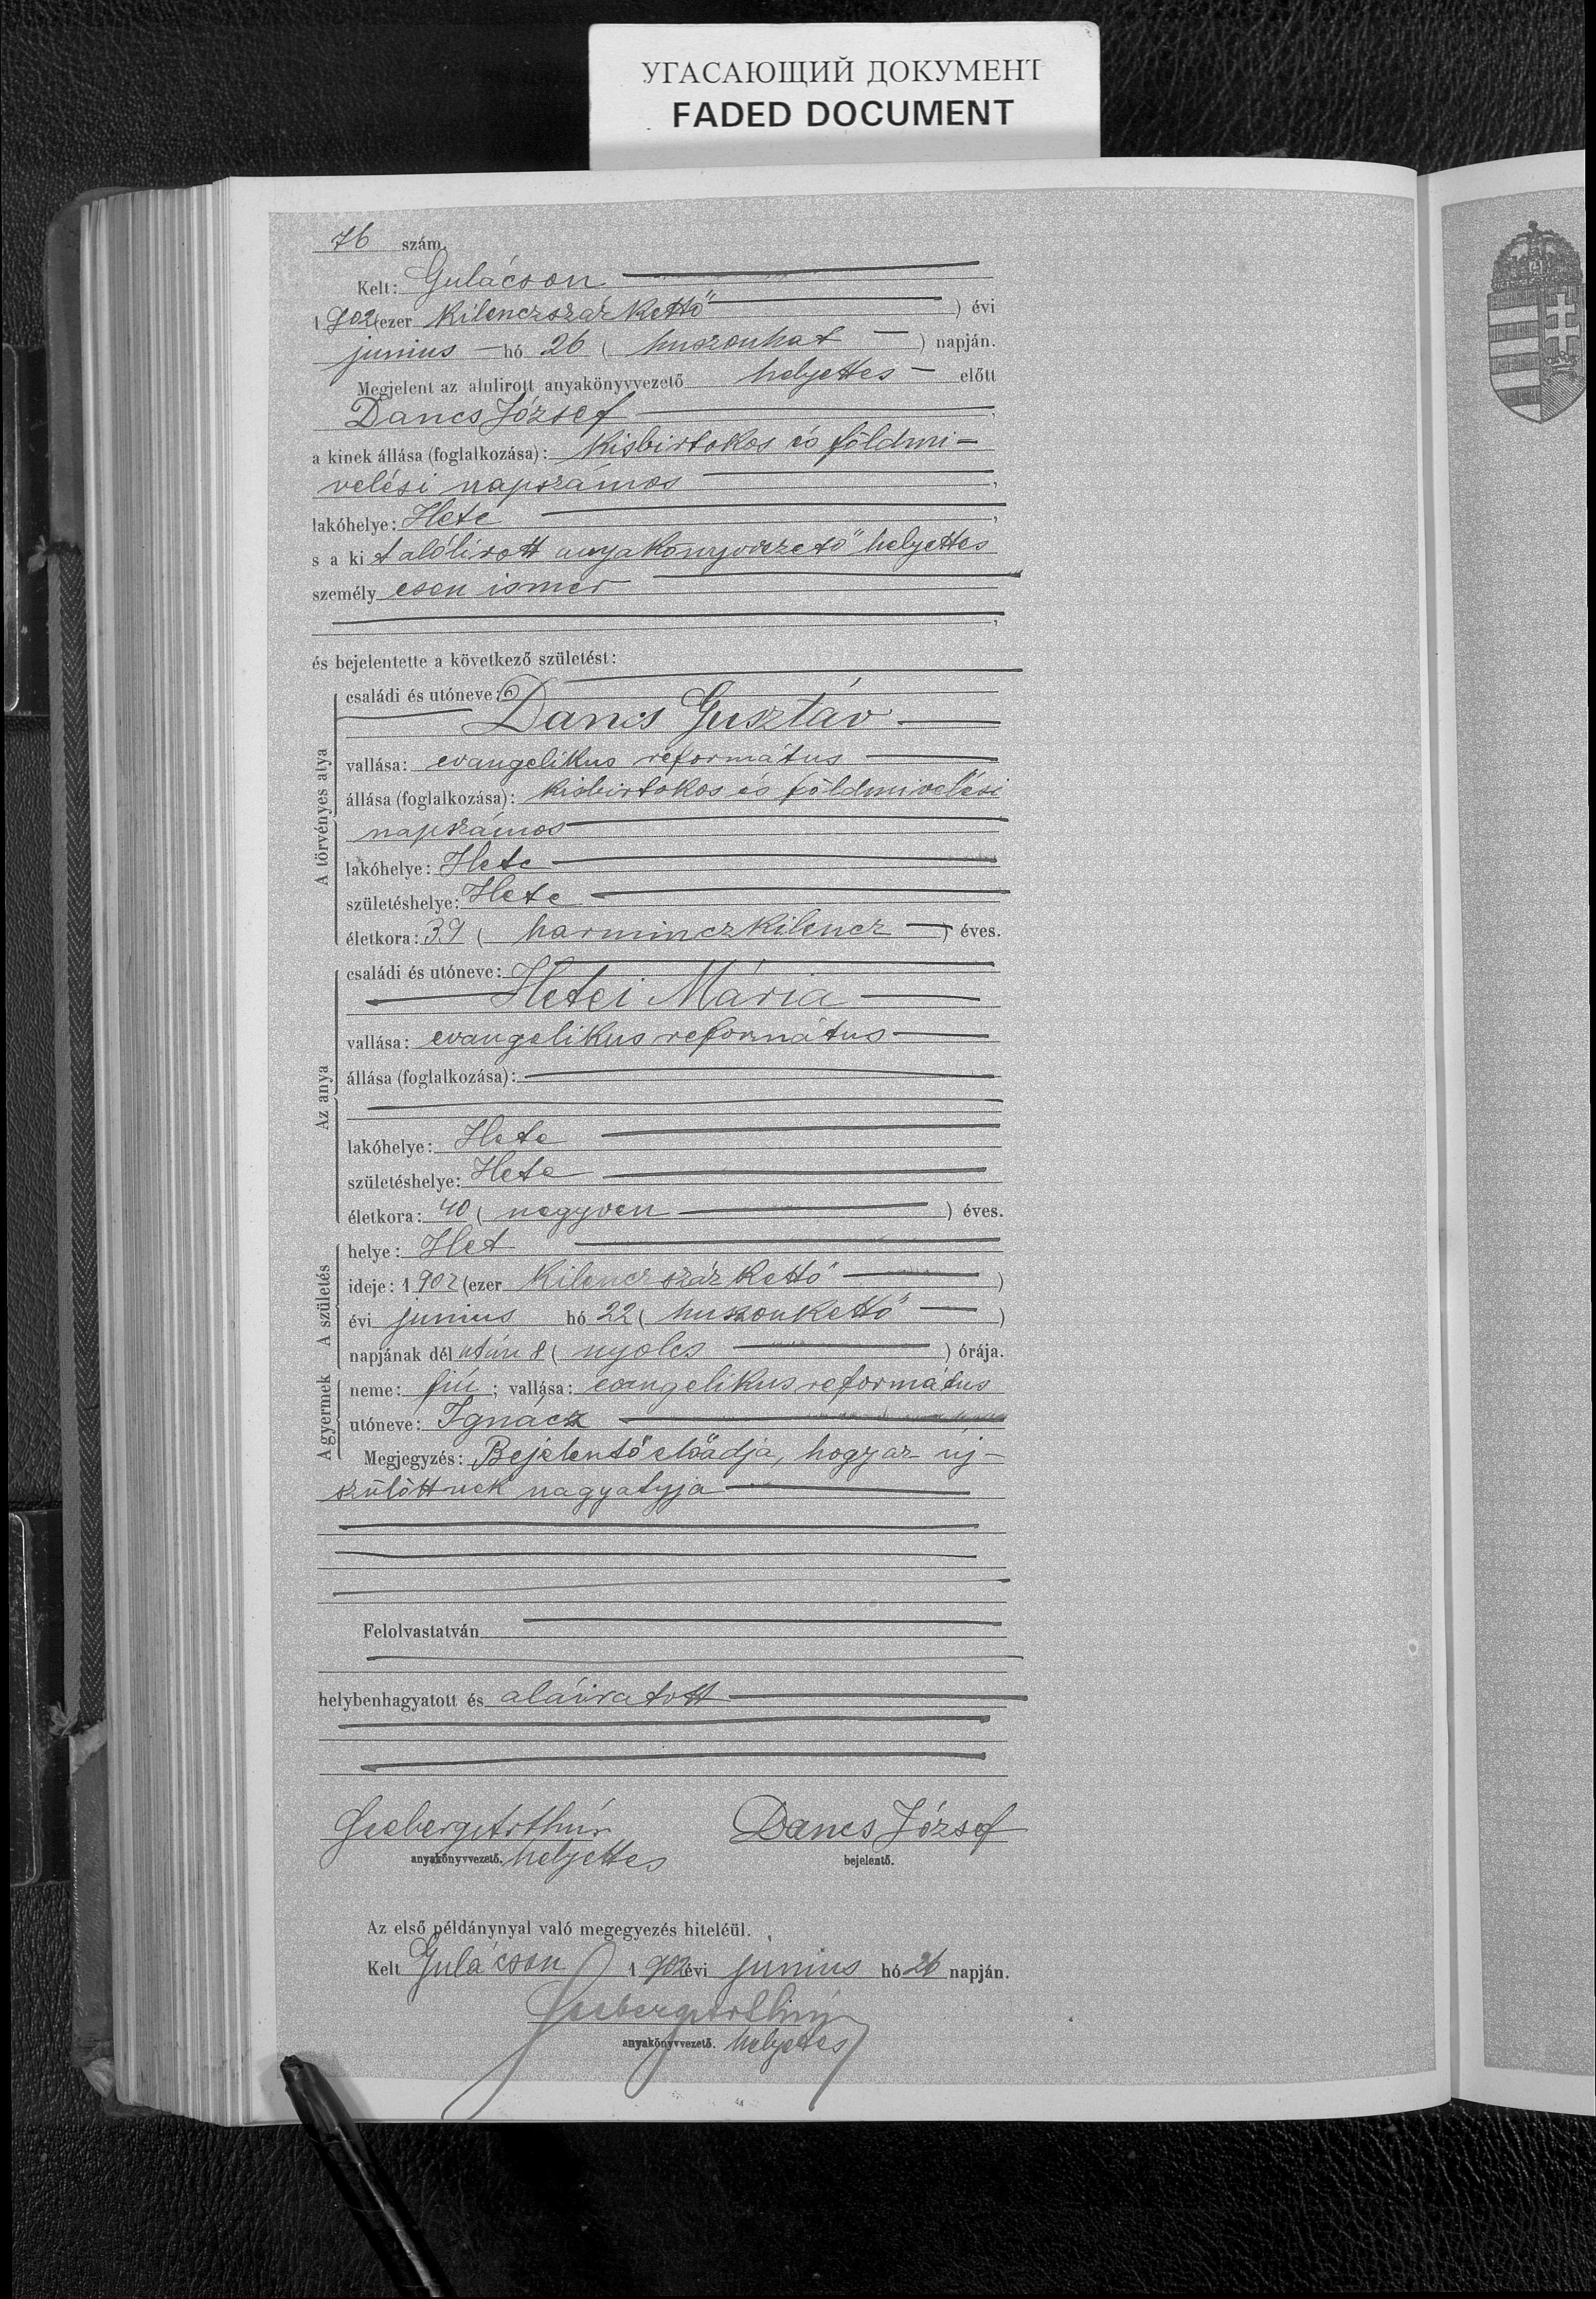 УГАСАЮЩИЙ ДОКУМЕНТ
FADED DOCUMENT
76 szám.
Kelt: Gulácson
1902 (ezer kilenczszáz kettő) évi
junius hó 26 (huszonhat) napján.
Megjelent az alulirott anyakönyvvezető helyettes előtt
Dancs József,
a kinek állása (foglalkozása): kisbirtokos és földmi-
velési napszámos,
lakóhelye: Hete,
s a kit alólirott anyakönyvvezető helyettes
személyesen ismer
,
és bejelentette a következő születést:
A törvényes atya
családi és utóneve:
Dancs Gusztáv
vallása: evangelikus református
állása (foglalkozása): kisbirtokos és földmivelési
napszámos
lakóhelye: Hete
születéshelye: Hete
életkora: 39 (harminczkilencz) éves.
Az anya
családi és utóneve:
Hetei Mária
vallása: evangelikus református
állása (foglalkozása):
lakóhelye: Hete
születéshelye: Hete
életkora: 40 (negyven) éves.
A születés
helye: Het
ideje: 1902 (ezer kilenczszáz kettő)
évi junius hó 22 (huszonkettő)
napjának délután 8 (nyolcs) órája.
A gyermek
neme: fiú; vallása: evangelikus református
utóneve: Ignácz
Megjegyzés: Bejelentő előadja, hogy az új-
szülöttnek nagyatyja
Felolvastatván
helybenhagyatott és aláiratott
Arthúr Dancs József
anyakönyvvezető. helyettes bejelentő.
Az első példánynyal való megegyezés hiteléül.
Kelt Gulácson 1902 évi junius hó 26 napján.
anyakönyvvezető. helyettes